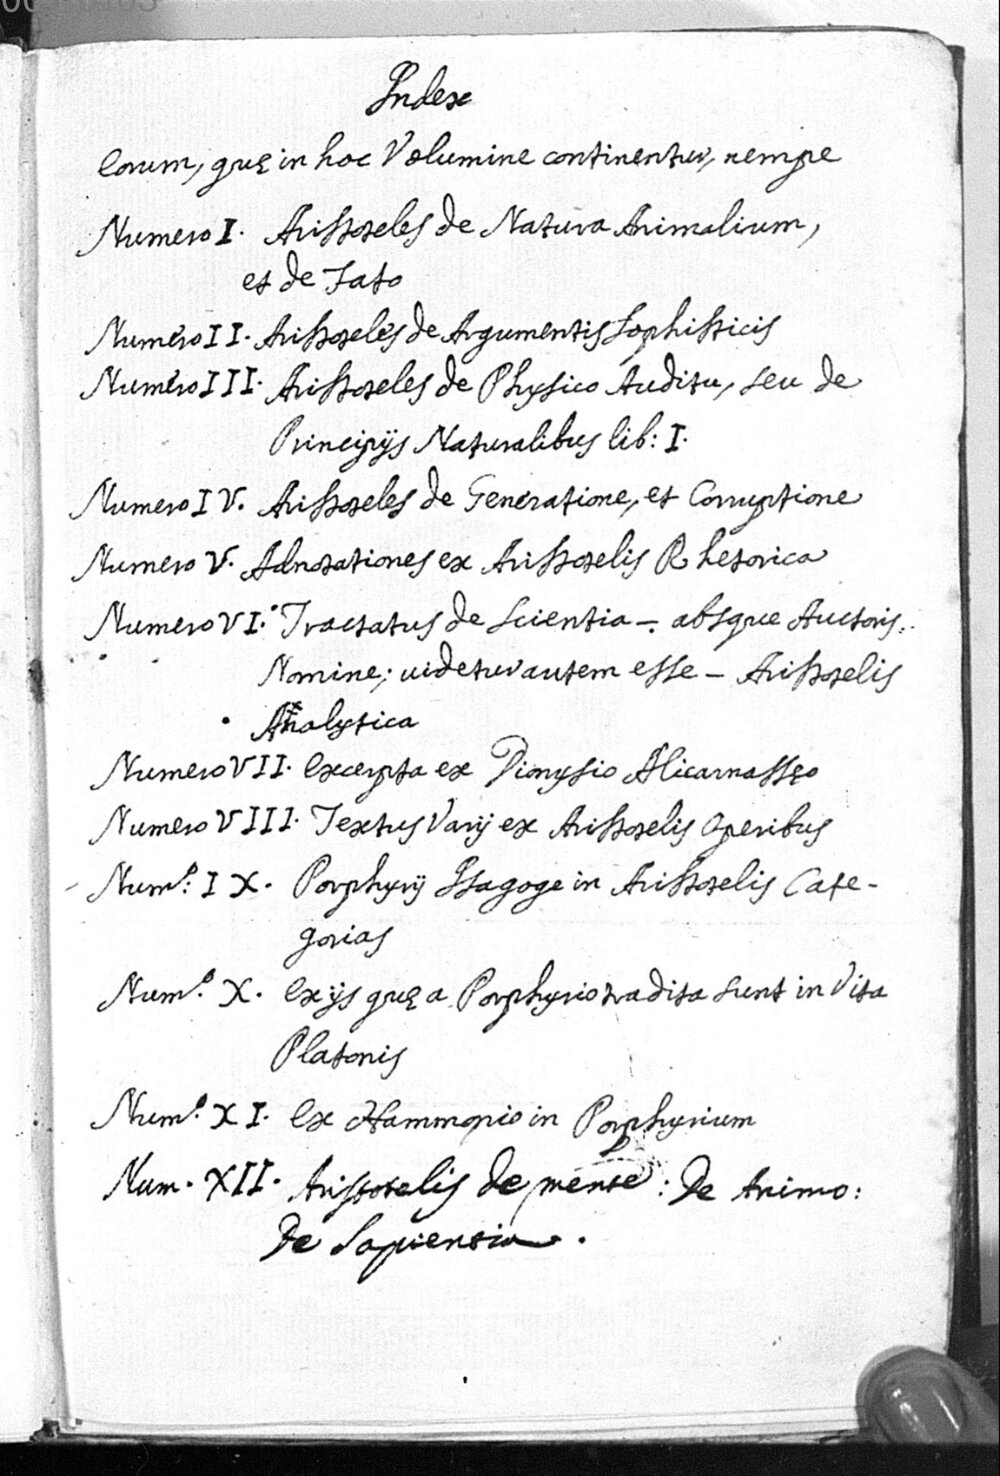 Index
Eorum, quę in hoc Volumine continentur, nempe
Numero I. Aristoteles de Natura Animalium,
et de Fato
Numero II. Aristoteles de Argumentis Sophisticis
Numero III. Aristoteles de Physico Auditu, seu de
Principijs Naturalibus lib: I.
Numero IV. Aristoteles de Generatione, et Corruptione
Numero V. Adnotationes ex Aristotelis Rhetorica
Numero VI. Tractatus de Scientia -. absque Auctoris
Nomine; uidetur autem esse - Aristotelis
Analytica
Numero VII. Excerpta ex Dionysio Alicarnasseo
Numero VIII. Textus Varij ex Aristotelis Operibus
Num.º: IX. Porphyrij Isagoge in Aristotelis Cate-
gorias
Num.º X. Ex ijs quę a Porphyrio tradita sunt in Vita
Platonis
Num.º XI. Ex Hammonio in Porphyrium
Num. XII. Aristotelis de mente: De Animo:
De Sapientia.